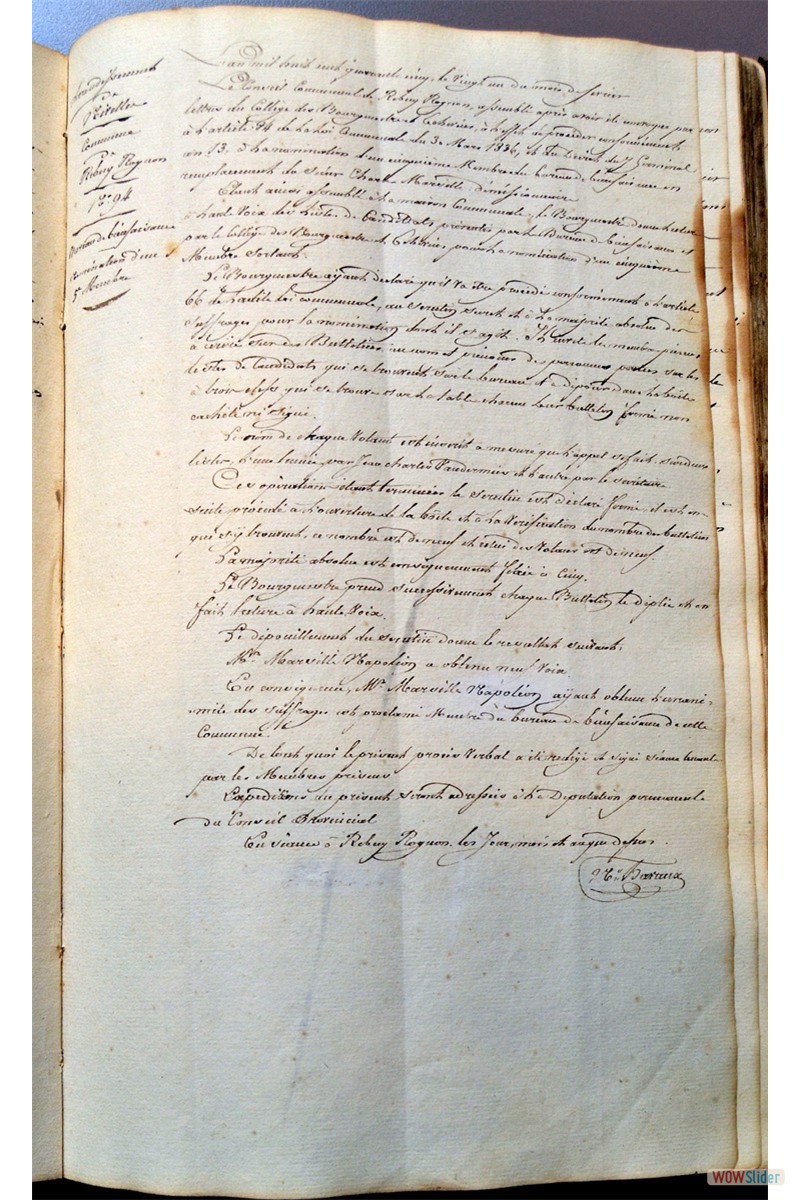 arrondissement
de
Nivelles
Commune
de
Rebecq Rognon
N° 94
Bureau de bienfaisance
Nomination d'un
5e Membre
L'an mil huit cent quarante cinq, le vingt un du mois de fevrier
Le Conseil Communal de Rebecq Rognon, assemblé après avoir été convoqué par
lettres du Collège des Bourgmestre et Echevins, à l'effet de procéder conformément
à l'article 84 de la Loi Communale du 30 Mars 1836, et du Décret du 7 Germinal
an 13, à la nomination d'un cinquième Membre du bureau de bienfaisance en
remplacement du Sieur Charles Marville démissionnaire
Etant ainsi assemblé à la maison Communale, le Bourgmestre donne lecture
à haute voix des listes de Candidats, présentés par le Bureau de bienfaisance et
par le Collège des Bourgmestre et Echevins, pour la nomination d'un cinquième
Membre Sortant.
Le Bourgmestre ayant déclaré qu'il va être procédé conformément à l'article
66 de ladite Loi communale, au scrutin secret et à la majorité absolue des
suffrages, pour la nomination dont il s'agit. Il invite les membres présens
à écrire sur des Bulletins, un nom et prénoms des personnes portées sur les
listes de Candidats qui se trouvent sur le bureau et à déposer dans la boîte
à trois clefs qui se trouve sur la table chacun leur bulletin fermé non
cacheté ni signé.
Le nom de chaque Votant est inscrit à mesure que l'appel se fait, sur deux
listes, l'une tenue par Jean Charles et l'autre par le secrétaire
Ces opérations étant terminées le scrutin est déclaré fermé, il est en-
suite procédé à l'ouverture de la boîte et à la vérification du nombre de bulletins
qui s'y trouvent, ce nombre est de neuf et celui des Votans est de neuf.
La majorité absolue est conséquemment fixée à Cinq.
Le Bourgmestre prend successivement chaque Bulletin, le déplie et en
fait lecture à haute Voix.
Le dépouillement du scrutin donne le resultat suivant:
Mr. Marville Napoléon a obtenu neuf Voix.
En conséquence, Mr. Marville Napoléon ayant obtenu l'unani-
mité des suffrages est proclamé Membre du bureau de bienfaisance de cette
Commune.
De tout quoi le présent procès Verbal a été rédigé et signé séance tenante
par les Membres présens
Expéditions du présent seront adressées à la Députation permanente
du Conseil Provincial
En séance à Rebecq Rognon, les Jour, mois et an que dessus.
WOWSlider